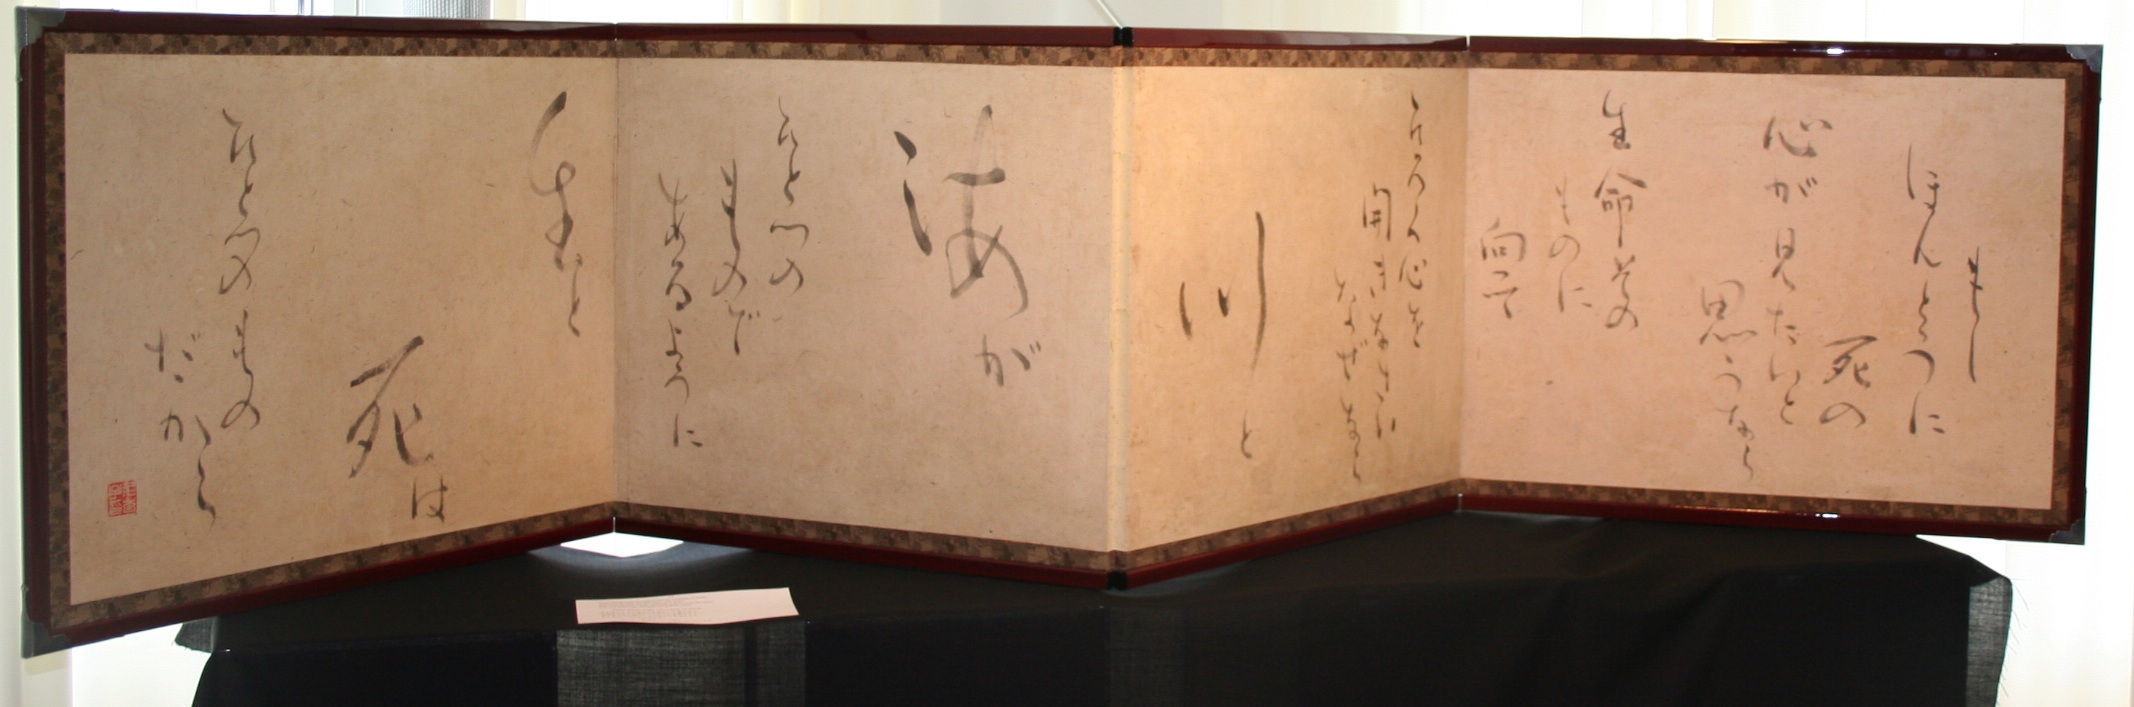 もし
ほんとうに
死の
心が見たいと
思うなら
生命その
ものに
向って
ひろく心を
開きなさい
なぜなら
川と
海が
ひとつの
もので
あるように
生と
死は
ひとつのもの
だから